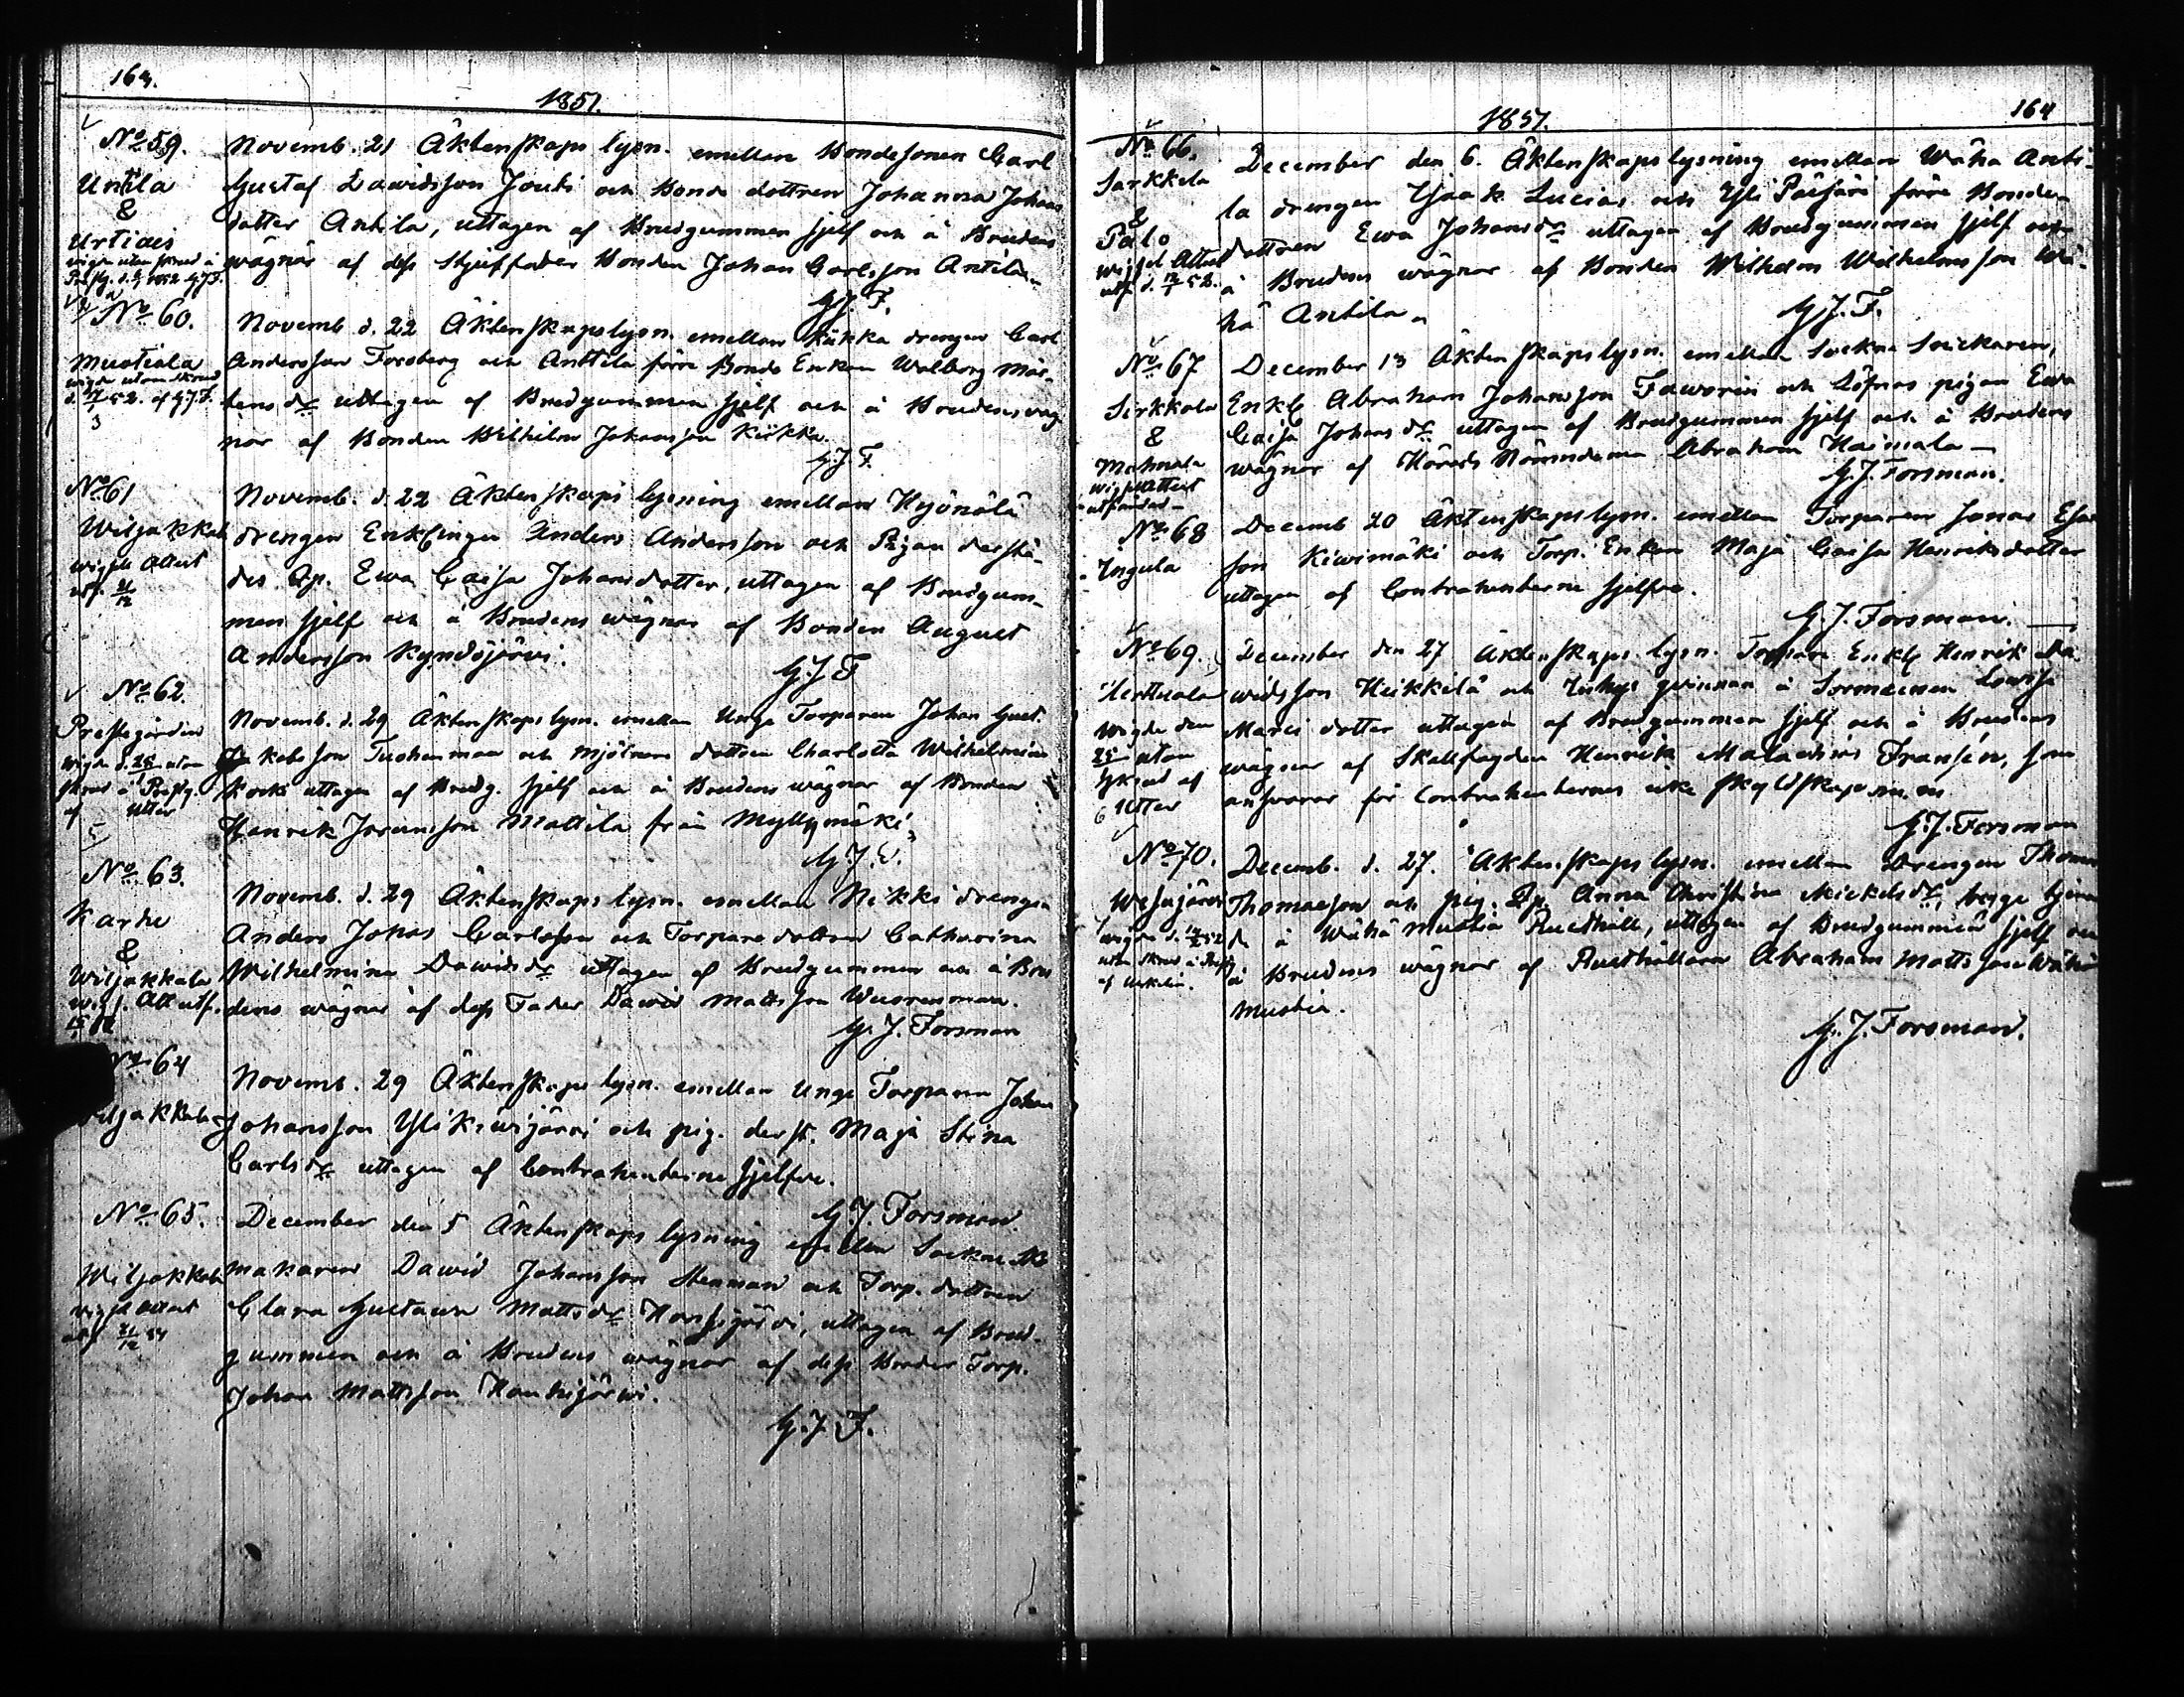 163.
1851.
No 59.
Untila
&
Urtiais
Novemb. 21 Äktenskaps lysn. emellan Bondesonen Carl
Gustaf Dawidsson Jouti och Bonde dottren Johanna Johans
dotter Antila, uttagen af Brudgummen sjelf och å Brudens
wägnar af dess Styffader Bonden Johan Carlsson Antila
G.J.F.
No 60.
Mustiala
wigde utom skrud
Novemb d. 22 Äktenskapslysn. emellan Kükka drengen Carl
Andersson Forsberg och Anttila förre Bonde Enkan Walborg Mår-
tens dr uttagen af Brudgummen sjelf och å Brudens wäg
nar af Bonden Wilhelm Johansson Kükka.
G.J.F.
No 61
Wiljakkala
wigsel Attest
utf. 21/12
Novemb. d. 22 Äktenskaps lysning emellan Hyönälä
drengen Enklingen Anders Andersson och Pigan derstä-
des Qp. Ewa Caisa Johansdotter, uttagen af Brudgum-
men sjelf och å Brudens wägnar af Bonden August
Andersson Kyndöjärvi.
G.J.F
No 62.
Prestegården
Novemb. d. 29 Äktenskaps lysn. emellan Unge Torparen Johan Gust.
Jakobsson Tuohenmaa och Mjölnare dottren Charlotta Wilhelmina
Koski uttagen af Brudg. sjelf och å Brudens wägnar af Bonden
Henrik Joransson Mattila från Myllymäki
G.J.F.
No 63.
Karhe
&
Wiljakkala
wigs. Att utf.
Novemb. d. 29 Äktenskaps lysn. emellan Nikki drengen
Anders Johas Carlsson och Torpare dottren Catharina
Wilhelmina Dawids dr uttagen af Brudgummen och å Bru
dens wägnar af dess Fader Dawid Mattsson Wuorenmaa.
G.J. Forsman
No 64
Wiljakkala
Novemb. 29 Äktenskaps lysn. emellan Unge Torparen Johan
Johansson Yli Kiwijärvi och pig. derst. Maja Stina
Carls dr uttagen af Contrahenterne sjelfve.
G.J. Forsman
No 65.
Wiljakkala
wigsel Attest
utf
December den 5 Äktenskaps lysning emellan Sockne Sko
makaren Dawid Johansson Stenman och Torp. dottren
Clara Gustawa Matts dr Hanhijärvi, uttagen af Brud-
gummen och å Brudens wägnar af dess Broder Torp.
Johan Mattsson Hanhijärwi.
G.J.F.
164
1851.
No 66.
Sarkkila
&
Palo
wigsel Attest
utf d. 18/1 52.
December den 6. Äktenskaps lysning emellan Wäha Anti-
la drengen Isaak Lucias och Yli Päijäri förre Bonde
dottren Ewa Johans dr uttagen af Brudgummen sjelf och
å Brudens wägnar af Bonden Wilhelm Wilhelmsson Wä-
hä Antila
G.J.F.
No 67
Sirkkala
&
Mahnala
wigsel Attest
utfärdad
December 13 Äktenskapslysn. emellan Sockne Snickaren,
Enkl Abraham Johansson Faworin och Löfnas pigan Ewa
Caisa Johans dr uttagen af Brudgummen sjelf och å Brudens
wägnar af Härads Nämndeman Abraham Haimala
G.J. Forsman.
No 68
Ingula
Decemb 20 Äktenskapslysn. emellan Torparen Jonas Esa
son Kiwimäki och Torp. Enkan Maja Caisa Henriksdotter
uttagen af Contrahenterne sjelfva.
G.J. Forsman.
No 69.
Herttuala
Wigde den
utom
skrud af
Utter
December den 27 Äktenskaps lysn. Torpare Enkl Henrik Da
widsson Heikkilä och Inhys qvinnan å Sormainen Lowisa
Marci dotter uttagen af Brudgummen sjelf och å Brudens
wägnar af Skallfogden Henrik Malachias Fransén, som
ansvarar för Contrahenternes icke skyldskap m.m.
G.J. Forsman
No 70.
Wesajärvi
Decemb. d. 27. Äktenskaps lysn. emellan Drengen Thomas
Thomasson och pig. Qp. Anna Christina Mickels dr, begge tjenan
de å Wähä Mustia Rusthåll, uttagen af Brudgummen sjelf och
å Brudens wägnar af Rusthållaren Abraham Mattsson Wähä
Mustia.
G.J. Forsman.